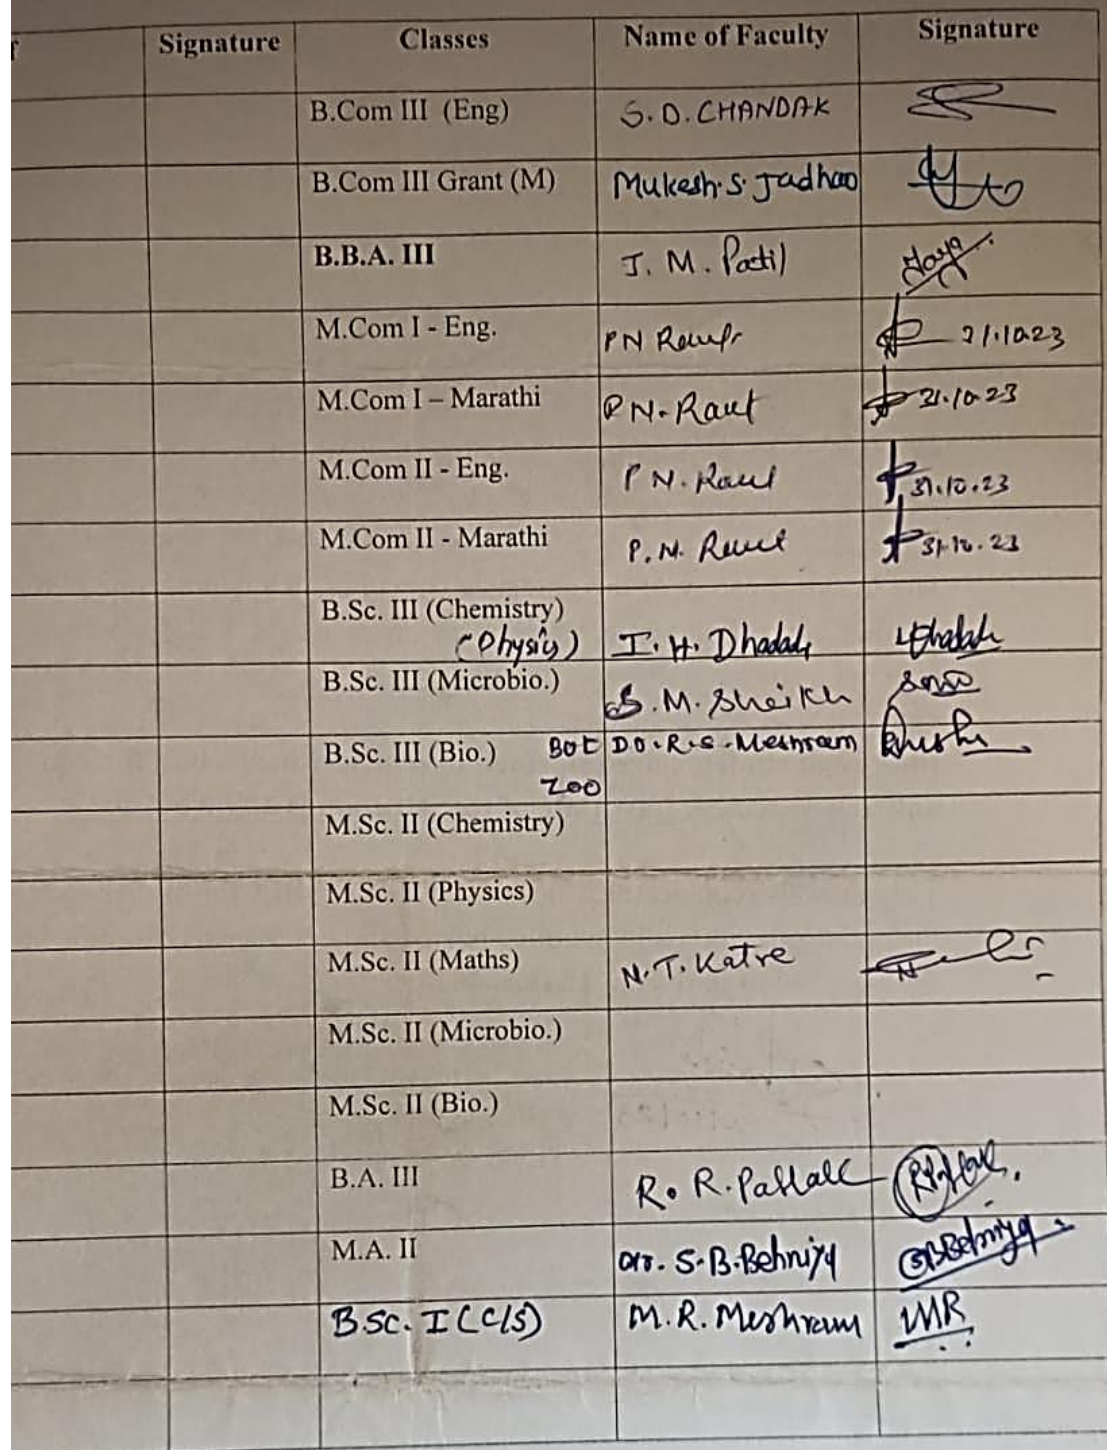 Signature Classes Name of Faculty Signature
B.Com III (Eng) S.D. CHANDAK
B.Com III Grant (M) Mukesh.S.Jadhao
B.B.A. III J. M. Patil Jaya
M.Com I - Eng. PN Raut 31.10.23
M.Com I – Marathi P N. Raut 31.10.23
M.Com II - Eng. P N. Raut 31.10.23
M.Com II - Marathi P. N. Raut 31.10.23
B.Sc. III (Chemistry)
(Physics) I. H. Dhadade
B.Sc. III (Microbio.) S.M. Sheikh
B.Sc. III (Bio.) Bot Do.R.S.Meshram
Zoo
M.Sc. II (Chemistry)
M.Sc. II (Physics)
M.Sc. II (Maths) N.T. Katre
M.Sc. II (Microbio.)
M.Sc. II (Bio.)
B.A. III R. R.
M.A. II Dr. S.B.Behniya SBBehniya
B.SC. I (C/S) M.R. Meshram MR